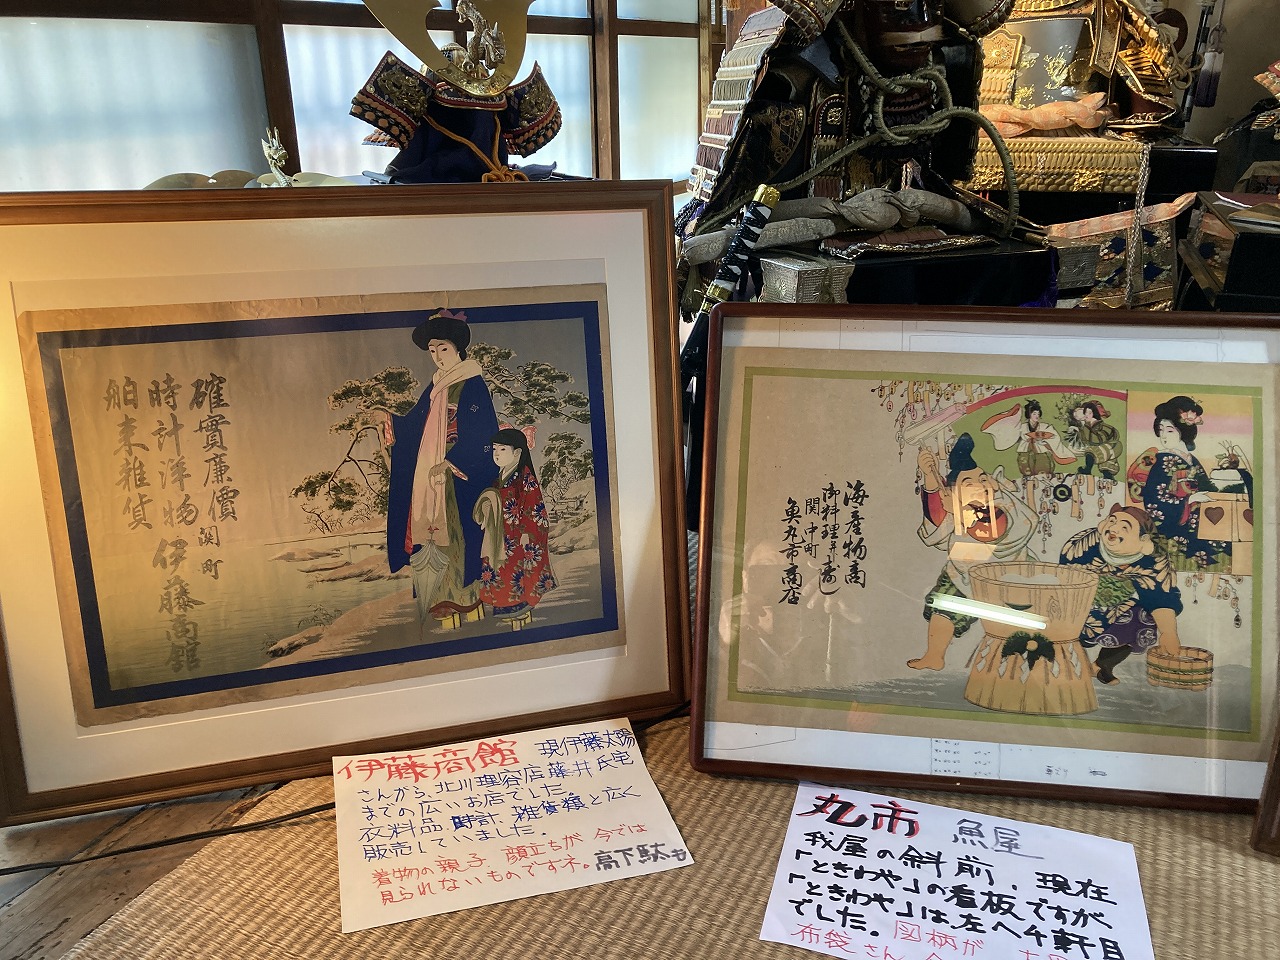 確實廉價
時計洋物
舶来雑貨
関町
伊藤商館
海産物商
御料理并寿し
関中町
魚丸市商店
伊藤商館 現伊藤太陽
さんから、北川理容店藤井氏宅
までの広いお店でした。
衣料品、時計、雑貨類と広く
販売していました。
着物の親子、顔立ちが今では
見られないものですネ。高下駄も
丸市 魚屋
我屋の斜前、現在
「ときわや」の看板ですが、
「ときわや」は左へ4軒目
でした。図柄が
布袋さん